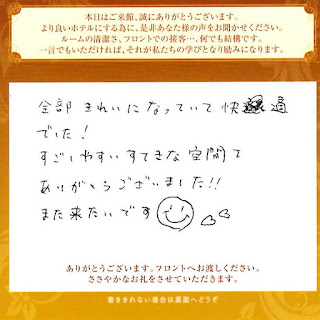 本日はご来館、誠にありがとうございます。
より良いホテルにする為に、是非あなた様の声をお聞かせください。
ルームの清潔さ、フロントでの接客…、何でも結構です。
一言でもいただければ、それが私たちの学びとなり励みになります。
全部きれいになっていて快適
でした!
すごしやすいすてきな空間を
ありがとうございました!!
また来たいです
ありがとうございます。フロントへお渡しください。
ささやかなお礼をさせていただきます。
書ききれない場合は裏面へどうぞ